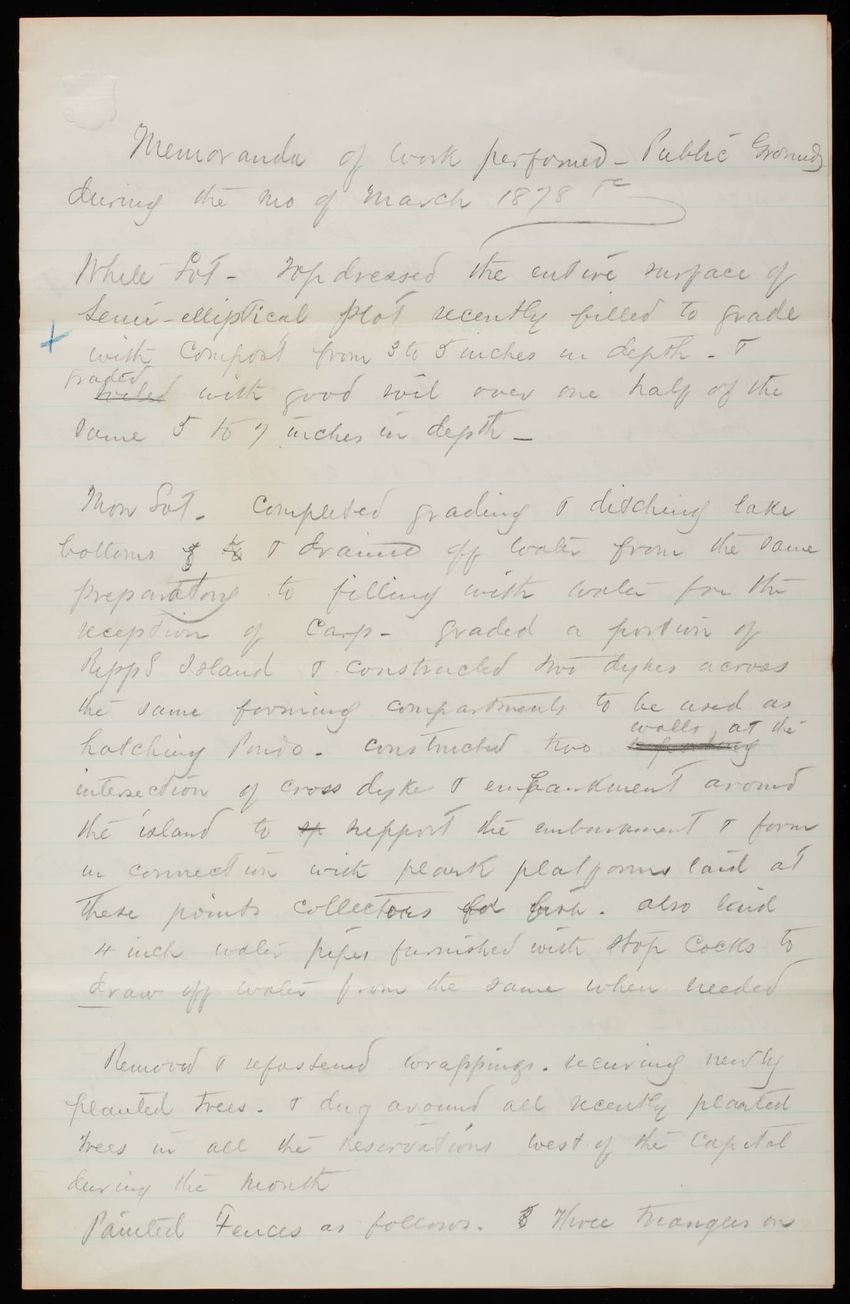 Memoranda of work performed - Public Grounds
during the mo of March 1878
White Lot - Top dressed the entire surface of
Semi-elliptical plot recently filled to grade
with compost from 3 to 5 inches in depth - &
graded
with good soil over one half of the
same 5 to 7 inches in depth -
Mon Lot - Completed grading & ditching lake
bottoms & drained off water from the same
preparatory to filling with water for the
reception of Carp - graded a portion of
Island & constructed two dykes across
the same forming compartments to be used as
walls at the
hatching Ponds - constructed two
intersection of cross dyke & embankment around
the island to support the embankment & form
in connection with plank platforms laid at
these points collectors for fish. also laid
4 inch water pipes furnished with stop cocks to
draw off water from the same when needed
Removed & refastened wrappings. securing newly
planted trees. & dug around all recently planted
trees in all the Reservations West of the Capitol
during the month
Painted Fences as follows. Three triangles on